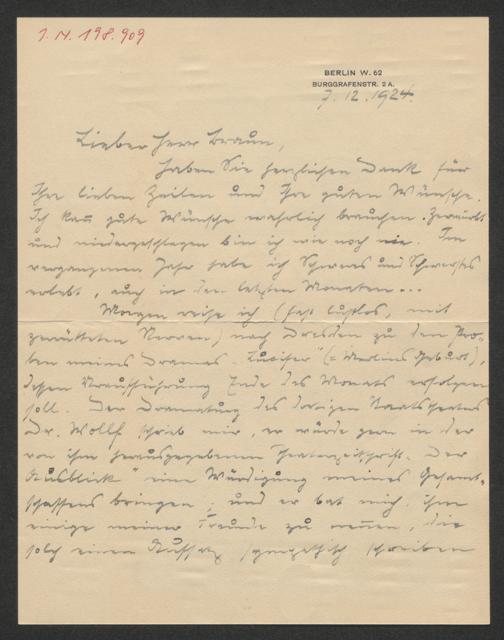 I. N. 198.909
BERLIN W. 62
BURGGRAFENSTR. 2 A.
7. 12. 1924.
Lieber Herr Braun,
haben Sie herzlichen Dank für
Ihre lieben Zeilen und Ihre guten Wünsche.
Ich kan̄ gute Wünsche wahrlich brauchen. Zermürbt
und niedergeschlagen bin ich wie noch nie. Im
vergangenen Jahr habe ich Schweres und Schwerstes
erlebt, auch in den letzten Monaten...
Morgen reise ich (fast lustlos, mit
zerrütteten Nerven) nach Dresden zu den Pro-
ben meines Dramas „Luzifer" (= Merlins Geburt),
dessen Uraufführung Ende des Monats erfolgen
soll. Der Dramaturg des dortigen Staatstheaters
Dr. Wollf schrieb mir, er würde gern in der
von ihm herausgegebenen Theaterzeitschrift „Der
Ausblick" eine Würdigung meines Gesamt-
schaffens bringen; und er bat mich, ihm
einige meiner Freunde zu nen̄en, die
solch einen Aufsatz sympathisch schreiben